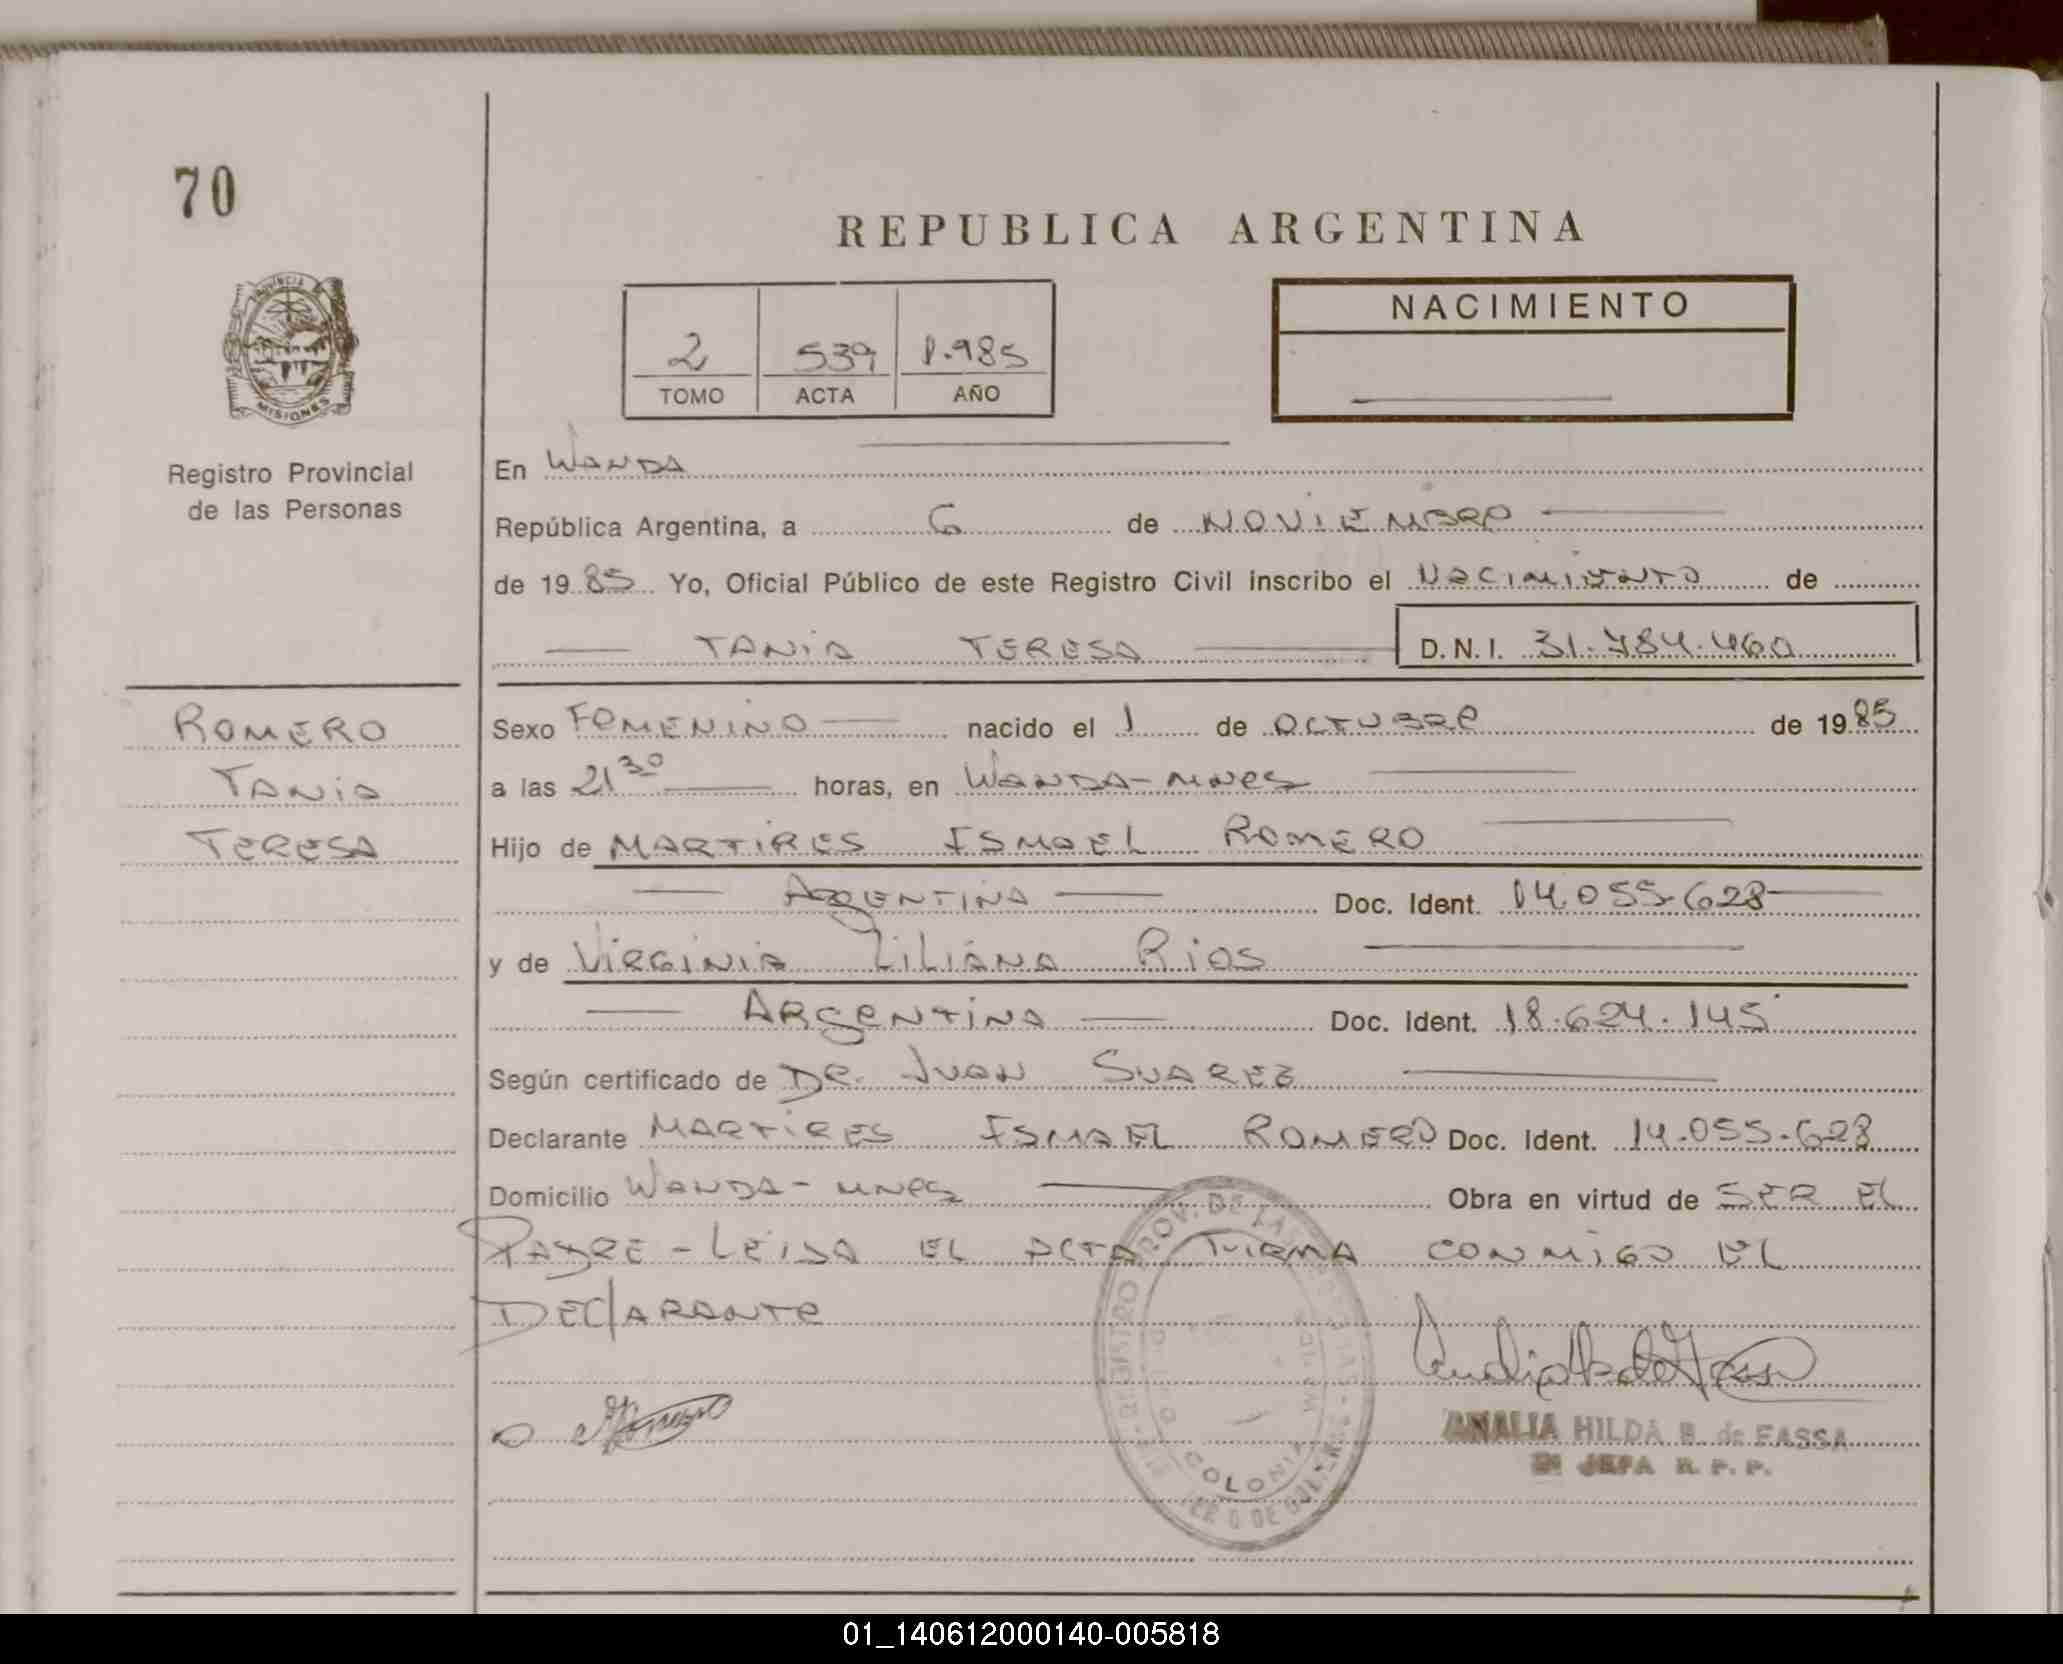 70
REPUBLICA ARGENTINA
PROVINCIA
MISIONES
Registro Provincial
de las Personas
2 539 1.985
TOMO ACTA AÑO
NACIMIENTO
En WANDA
República Argentina, a 6 de NOVIEMBRE
de 1985 Yo, Oficial Público de este Registro Civil inscribo el NACIMIENTO de
TANIA TERESA D.N.I. 31.784.460
ROMERO
TANIA
TERESA
Sexo FEMENINO nacido el 1 de OCTUBRE de 1985
a las 21 30 horas, en WANDA-MNES
Hijo de MARTIRES ISMAEL ROMERO
ARGENTINA Doc. Ident. 14.055.628
y de VIRGINIA LILIANA RIOS
ARGENTINA Doc. Ident. 18.624.145
Según certificado de DR. JUAN SUAREZ
Declarante MARTIRES ISMAEL ROMERO Doc. Ident. 14.055.628
Domicilio WANDA - MNES Obra en virtud de SER EL
PADRE - LEIDA EL ACTA FIRMA CONMIGO EL
DECLARANTE
REGISTRO PROV. DE LAS
COLONIA WANDA
ANALIA HILDA B. de FASSA
JEFA R. P. P.
01_140612000140-005818